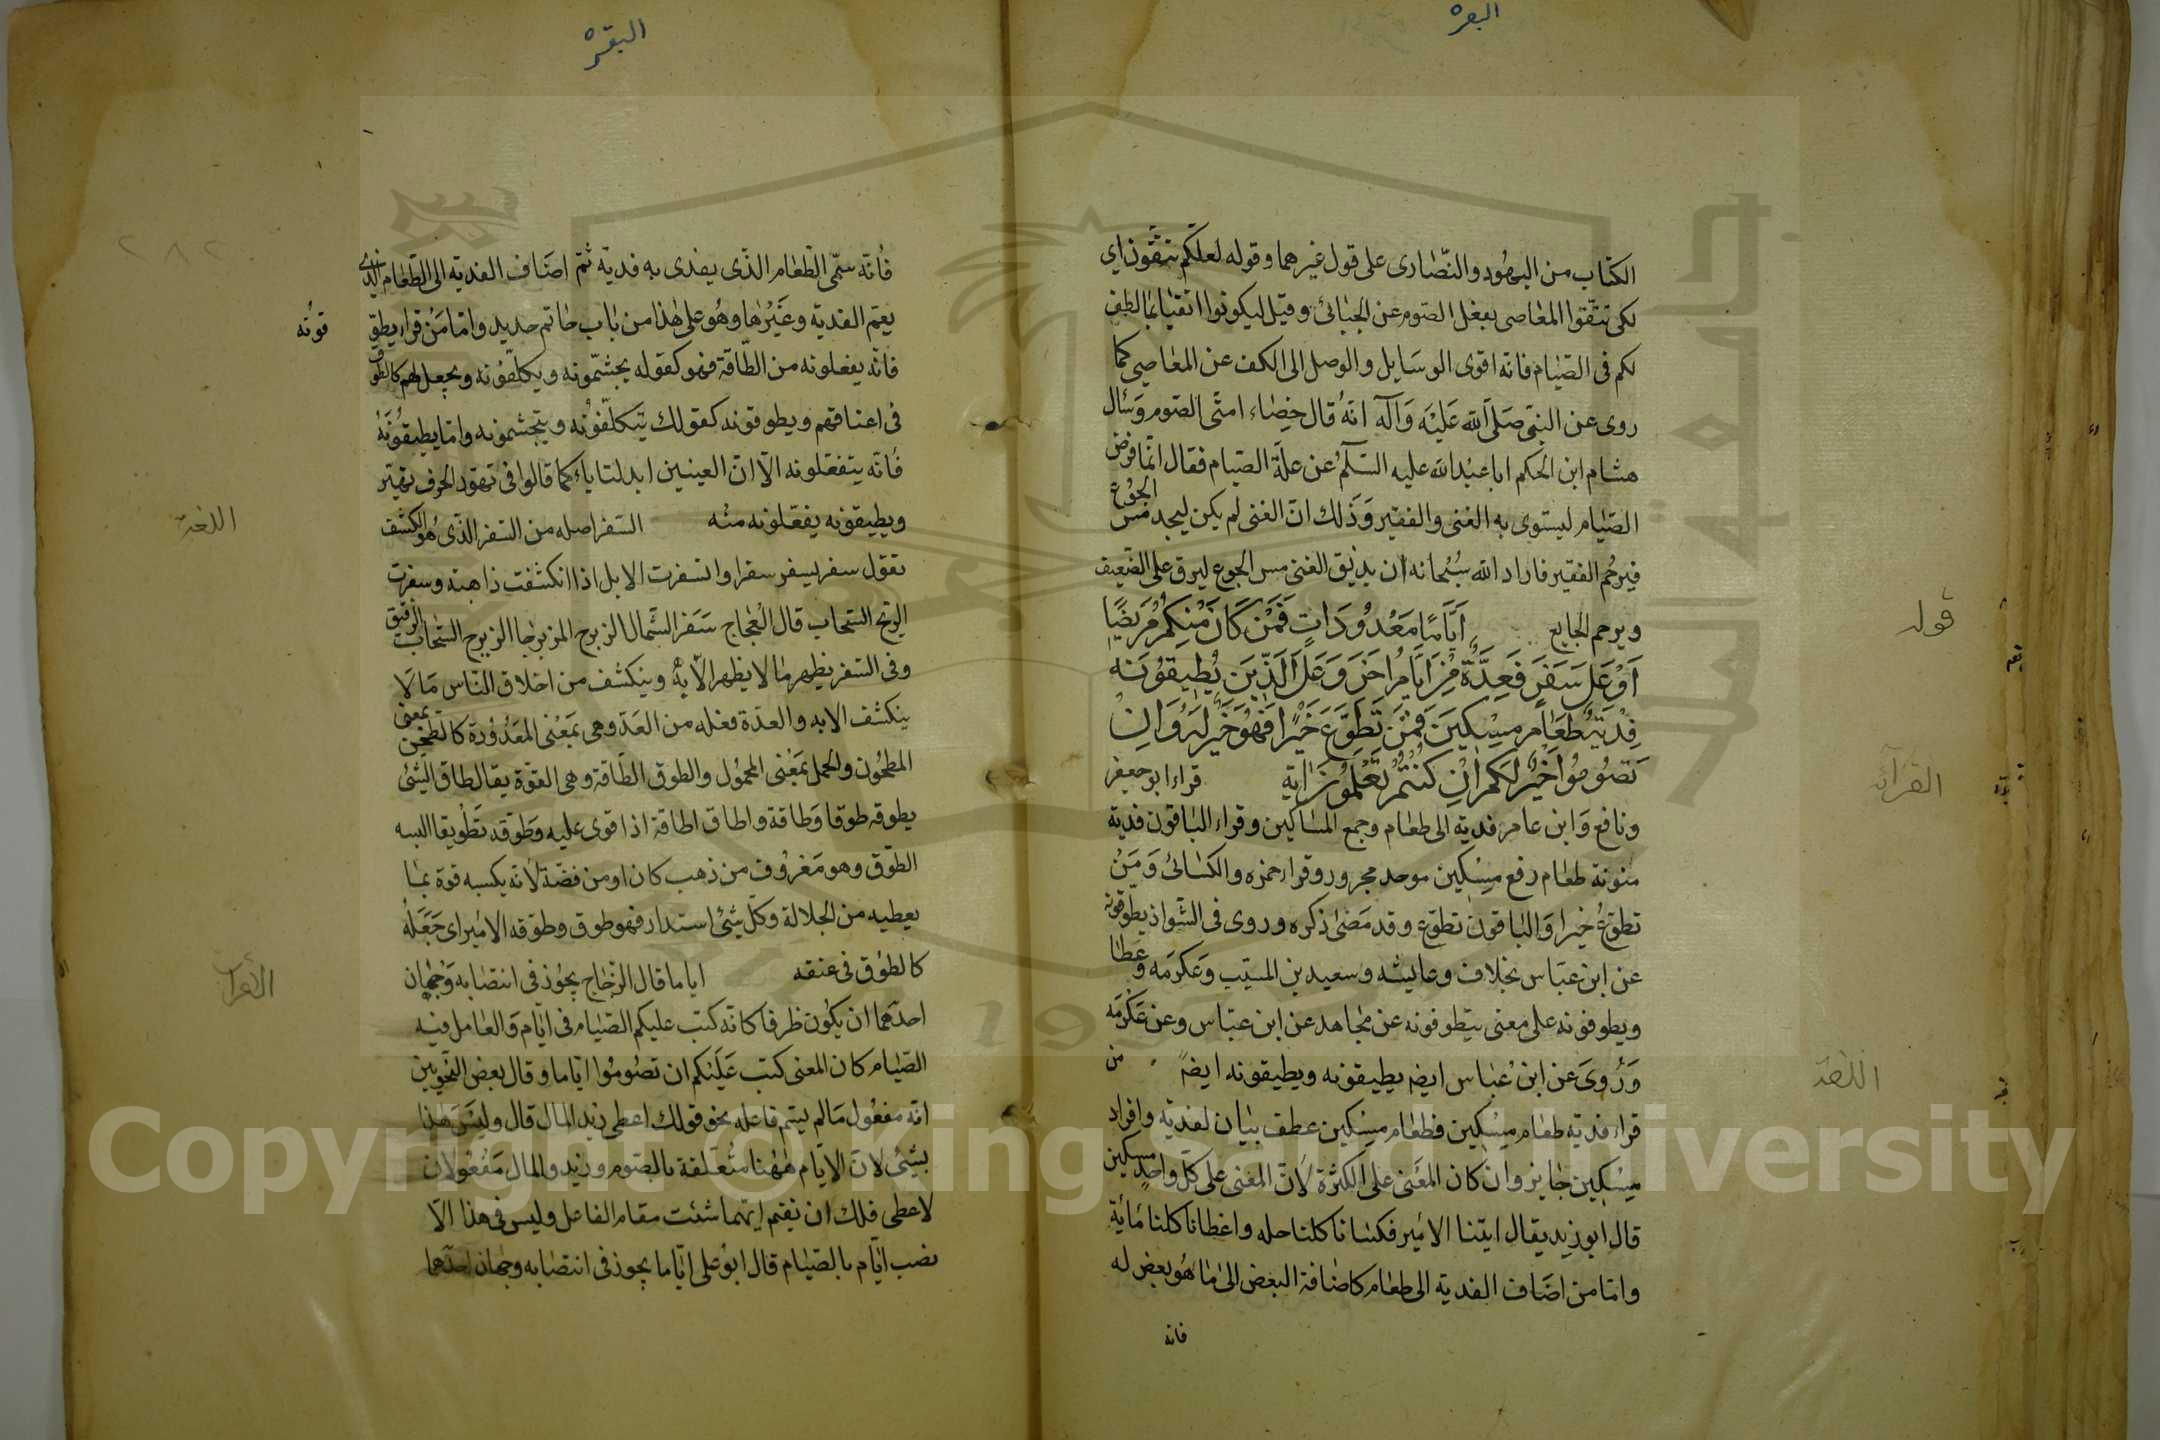 البقرة
الكتاب من اليهود والنصارى على قول غيرهما وقوله لعلكم تتقون اى
لكى تتقوا المعاصى بفعل الصوم عن الجبائى وقيل ليكونوا اتقيا بما لطف
لكم فى الصيام فانه اقوى الوسايل والوصل الى الكف عن المعاصي كما
روى عن النبى صلى الله عليه وآله انه قال خصاء امتى الصوم وسئال
هشام ابن الحكم ابا عبد الله عليه السلم عن علة الصيام فقال انما فرض
الصيام ليستوى به الغنى والفقير وذلك ان الغنى لم يكن ليجد مس الجوع
فيرحم الفقير فاراد الله سبحانه ان يذيق الغنى مس الجوع ليرق على الضعيف
ويرحم الجايع اياما معدودات فمن كان منكم مريضا
قوله
او على سفر فعدة من ايام اخر وعلى الذين يطيقونه
فدية طعام مسكين فمن تطوع خيرا فهو خير له وان
تصوموا خير لكم ان كنتم تعلمون اية قراء ابو جعفر
القراءة
ونافع وابن عامر فدية الى طعام وجمع المساكين وقراء الباقون فدية
منونة طعام رفع مسكين موحد مجرور وقراء حمزه والكسائى ومن
تطوع خيرا والباقون تطوع وقد مضى ذكره وروى فى الشواذ يطوقونه
عن ابن عباس بخلاف وعايشه وسعيد بن المسيب وعكرمه وعطا
ويطوقونه على معنى يتطوقونه عن مجاهد عن ابن عباس وعن عكرمه
وروى عن ابن عباس ايضم يطيقونه ويطيقونه ايضم من
اللغة
قراء فدية طعام مسكين فطعام مسكين عطف بيان لفدية وافراد
مسكين جايز وان كان المعنى على الكثرة لان المعنى على كل واحد مسكين
قال ابو زيد يقال اتينا الامير فكسانا كلنا حله واعطانا كلنا مائة
واما من اضاف الفدية الى طعام كاضافة البعض الى ما هو بعض له
فانه
البقرة
٢٨٢
فانه سمى الطعام الذى يفدى به فدية ثم اضاف الفدية الى الطعام الذى
يعم الفدية وغيرها وهو على هذا من باب خاتم حديد واما من قراء يطو
قونه
فانه يفعلونه من الطاقة فهو كقوله يجشمونه ويكلفونه ويجعل لهم كالطوق
فى اعناقهم ويطوقونه كقولك يتكلفونه ويتجشمونه واما يطيقونه
فانه يتفعلونه الا ان العينين ابدلتا ياء كما قالوا فى تهور الجرف تهير
ويطيقونه يفعلونه منه السفر اصله من السفر الذى هو الكشف
اللغة
تقول سفر يسفر سفرا وانسفرت الابل اذا انكشفت ذاهبة وسفرت
الريح السحاب قال العجاج سفر الشمال الزبرج المزبرجا الزبرج السحاب الرقيق
وفى السفر يظهر ما لا يظهر الا به وينكشف من اخلاق الناس ما لا
ينكشف الا به والعدة فعله من العد وهى بمعنى المعدودة كالطحن بمعنى
المطحون والحمل بمعنى المحمول والطوق الطاقة وهى القوة يقال طاق الشئ
يطوقه طوقا وطاقة واطاق اطاقة اذا قوى عليه وطوقه تطويقا البسه
الطوق وهو معروف من ذهب كان او من فضة لانه يكسبه قوة بما
يعطيه من الجلالة وكل شئ استدار فهو طوق وطوقه الامير اى جعله
كالطوق فى عنقه اياما قال الزجاج يجوز فى انتصابه وجهان
الاعراب
احدهما ان يكون ظرفا كانه كتب عليكم الصيام فى ايام والعامل فيه
الصيام كان المعنى كتب عليكم ان تصوموا اياما وقال بعض النحويين
انه مفعول ما لم يسم فاعله نحو قولك اعطى زيد المال قال وليس هذا
بشئ لان الايام ههنا متعلقة بالصوم وزيد والمال مفعولان
لاعطى فلك ان تقيم ايهما شئت مقام الفاعل وليس فى هذا الا
نصب ايام بالصيام قال ابو على اياما يجوز فى انتصابه وجهان احدهما
Copyright © King Saud University